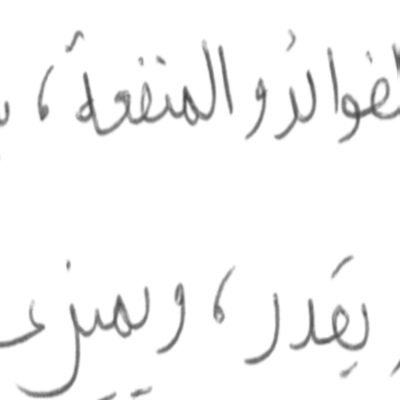 الفوائدُ والمنفعةً،
يقدر، ويميزى